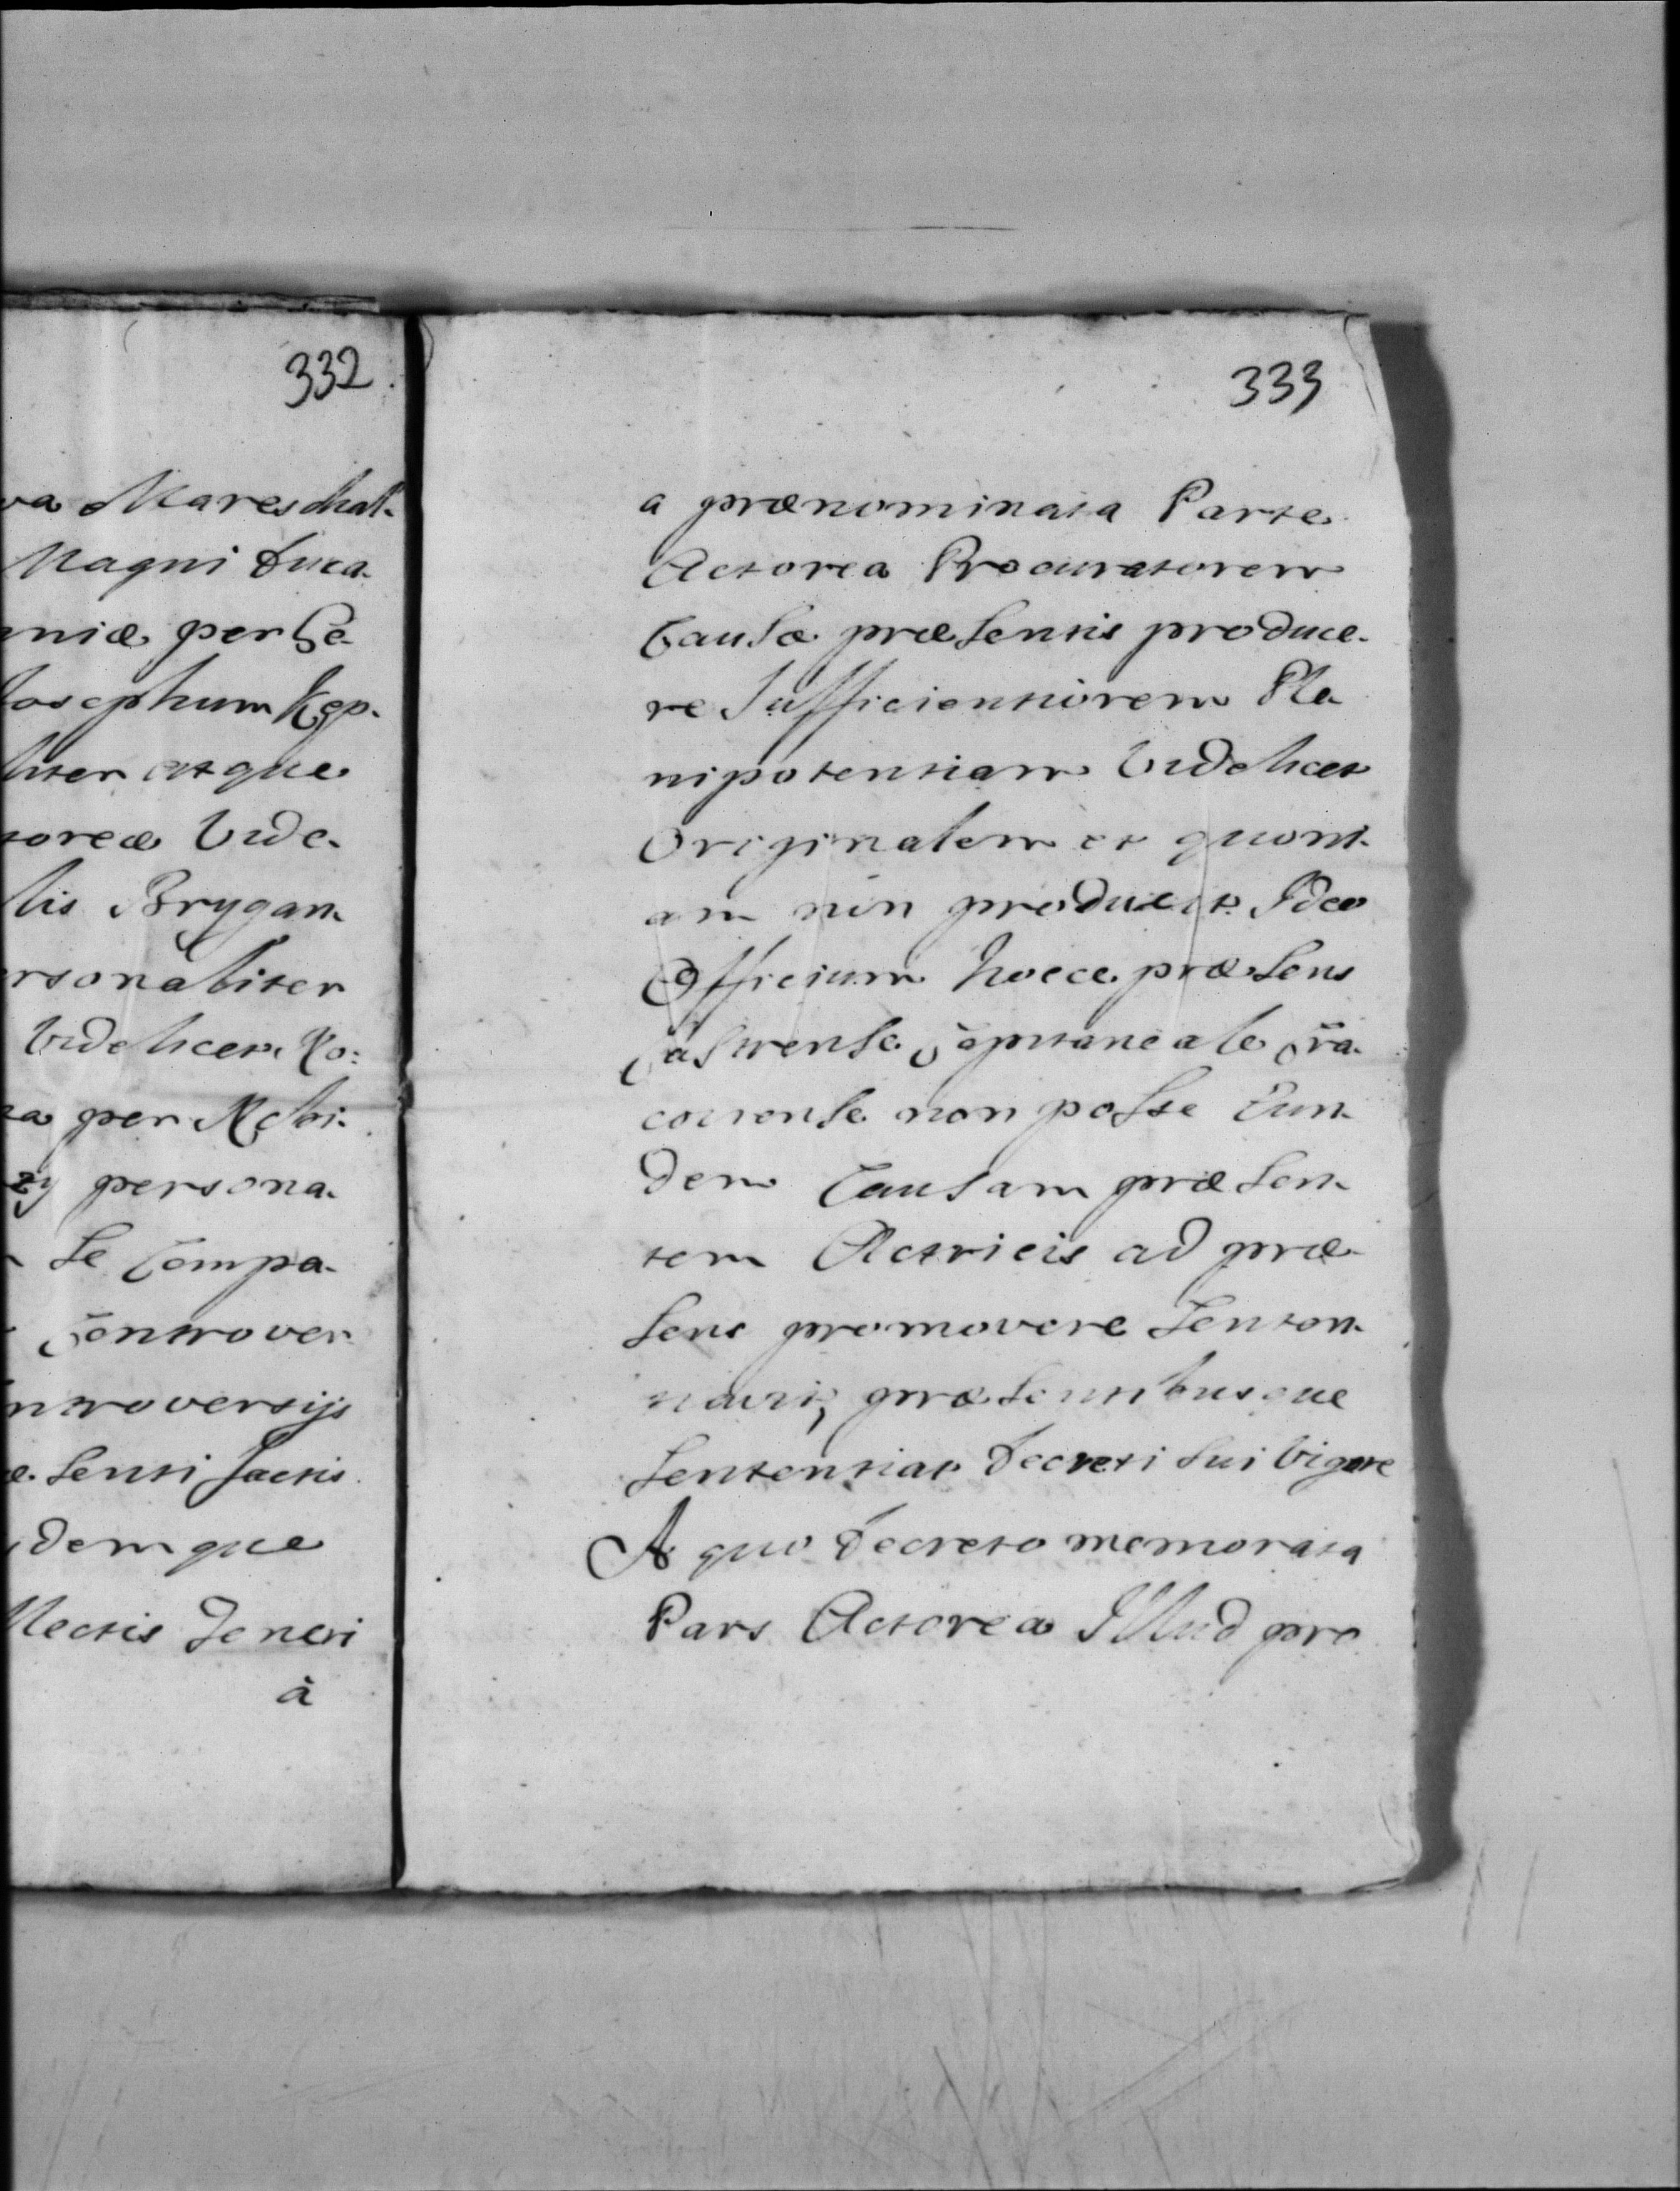 332
va Mareschal-
Magni Duca-
niæ per Ge-
Josephum Kęp-
liter atque
toreæ Vide-
lis Brygan-
ersonaliter
Videlicet Ro:
ta per Nobi-
zy persona-
Se Compa-
Controver-
ntroversijs
æ Senti factis
demque
llectis Teneri
à
333
a prænominata Parte
Actorea Procuratorem
Causæ præsentis produce-
re Sufficientiorem Ple
nipotentiam Videlicet
Originalem et quoni-
am non produxit Ideo
Officium hocce præsens
Castrense Capitaneale Cra-
coviense non posse Eun-
dem Causam præsen-
tem Actricis ad præ-
sens promovere Senten-
navit, præsentibusque
Sententiat Decreti Sui Vigore
A quo Decreto memorata
Pars Actorea Illud pro